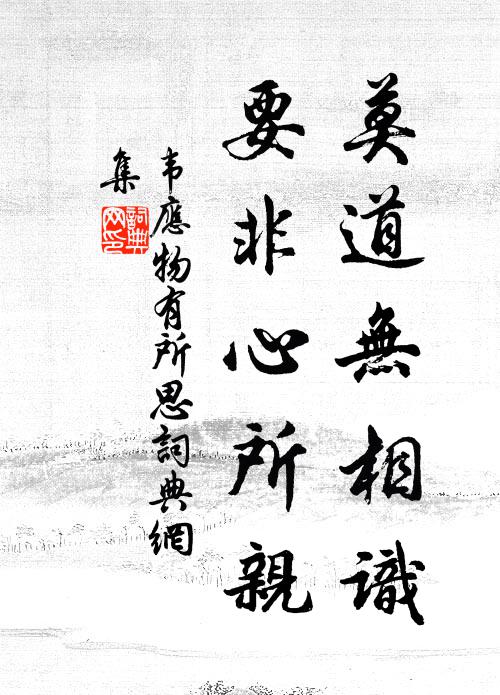 莫道無相識
要非心所親
韦應物有所思詞典網
集
詞典
网印